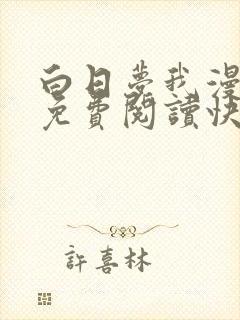 白日梦我漫
免費閱讀快
許喜林